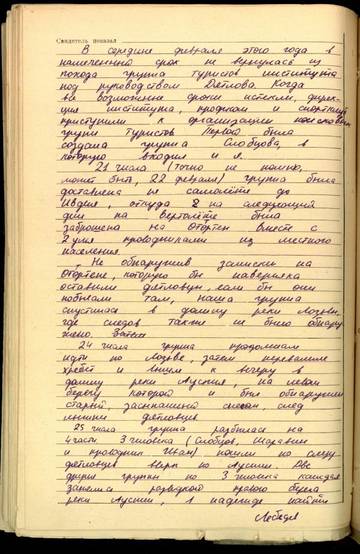 Свидетель показал
В середине февраля этого года в
намеченный срок не вернулась из
похода группа туристов института
под руководством Дятлова. Когда
все возможные сроки истекли, дирек-
ция института, профком и спортклуб
приступили к организации поисковых
групп туристов Первой была
создана группа Слобцова, в
которую входил и я.
21 числа (точно не помню,
может быть, 22 февраля) группа была
доставлена на самолёте до
Ивделя, откуда на следующий
день на вертолёте была
заброшена на Отортен вместе с
2 умя проводниками из местного
населения.
Не обнаружив записки на
Отортене, которую бы наверняка
оставили дятловцы, если бы они
побывали там, наша группа
спустилась в долину реки Лозьвы,
где следов также не было обнару
жено. Затем
24 числа группа продолжила
идти по Лозьве, затем перевалила
хребет и вышла к вечеру в
долину реки Ауспия, на левом
берегу которой и был обнаружен
старый, засыпанный снегом, след
лыжни дятловцев
25 числа группа разбилась на
4 части 3 человека (Слобцов, Шаравин
и проводник Иван) пошли по следу
дятловцев вверх по Ауспии. Две
другие группы по 3 человека каждая
занялись разведкой правого берега
реки Ауспии, в надежде найти
Лебедев